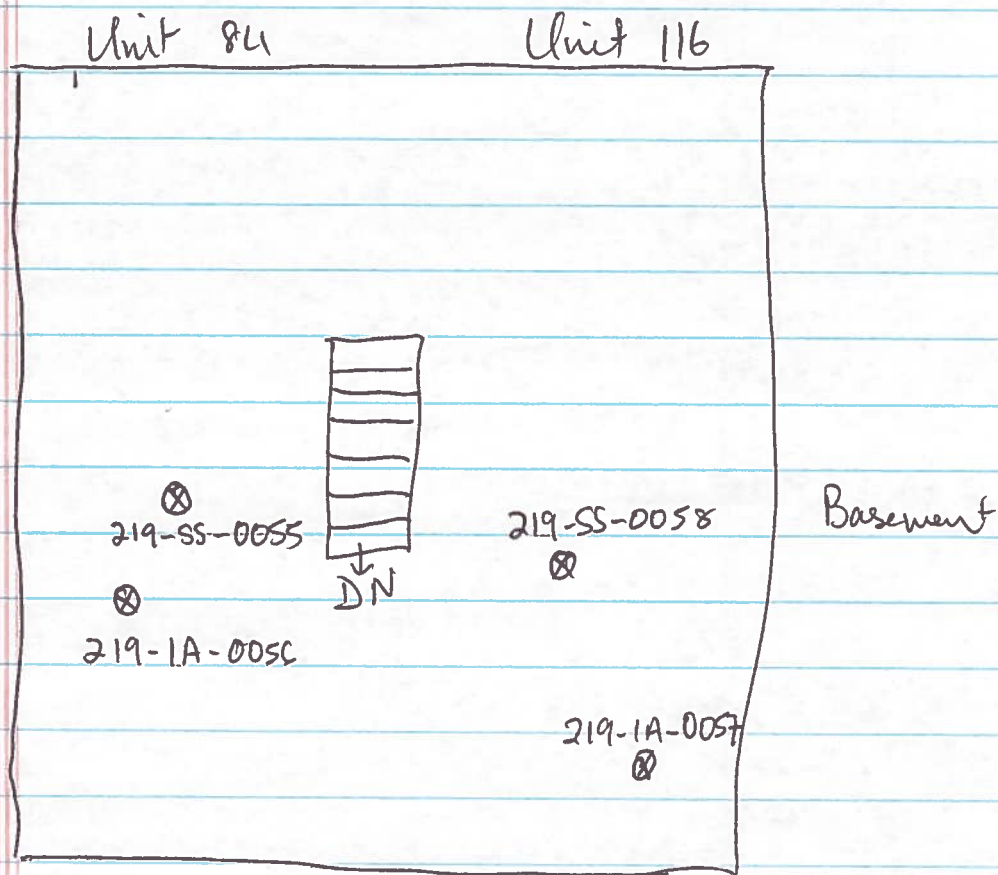 Unit 84 Unit 116
219-SS-0055
219-SS-0058
Basement
DN
219-IA-0056
219-IA-0057